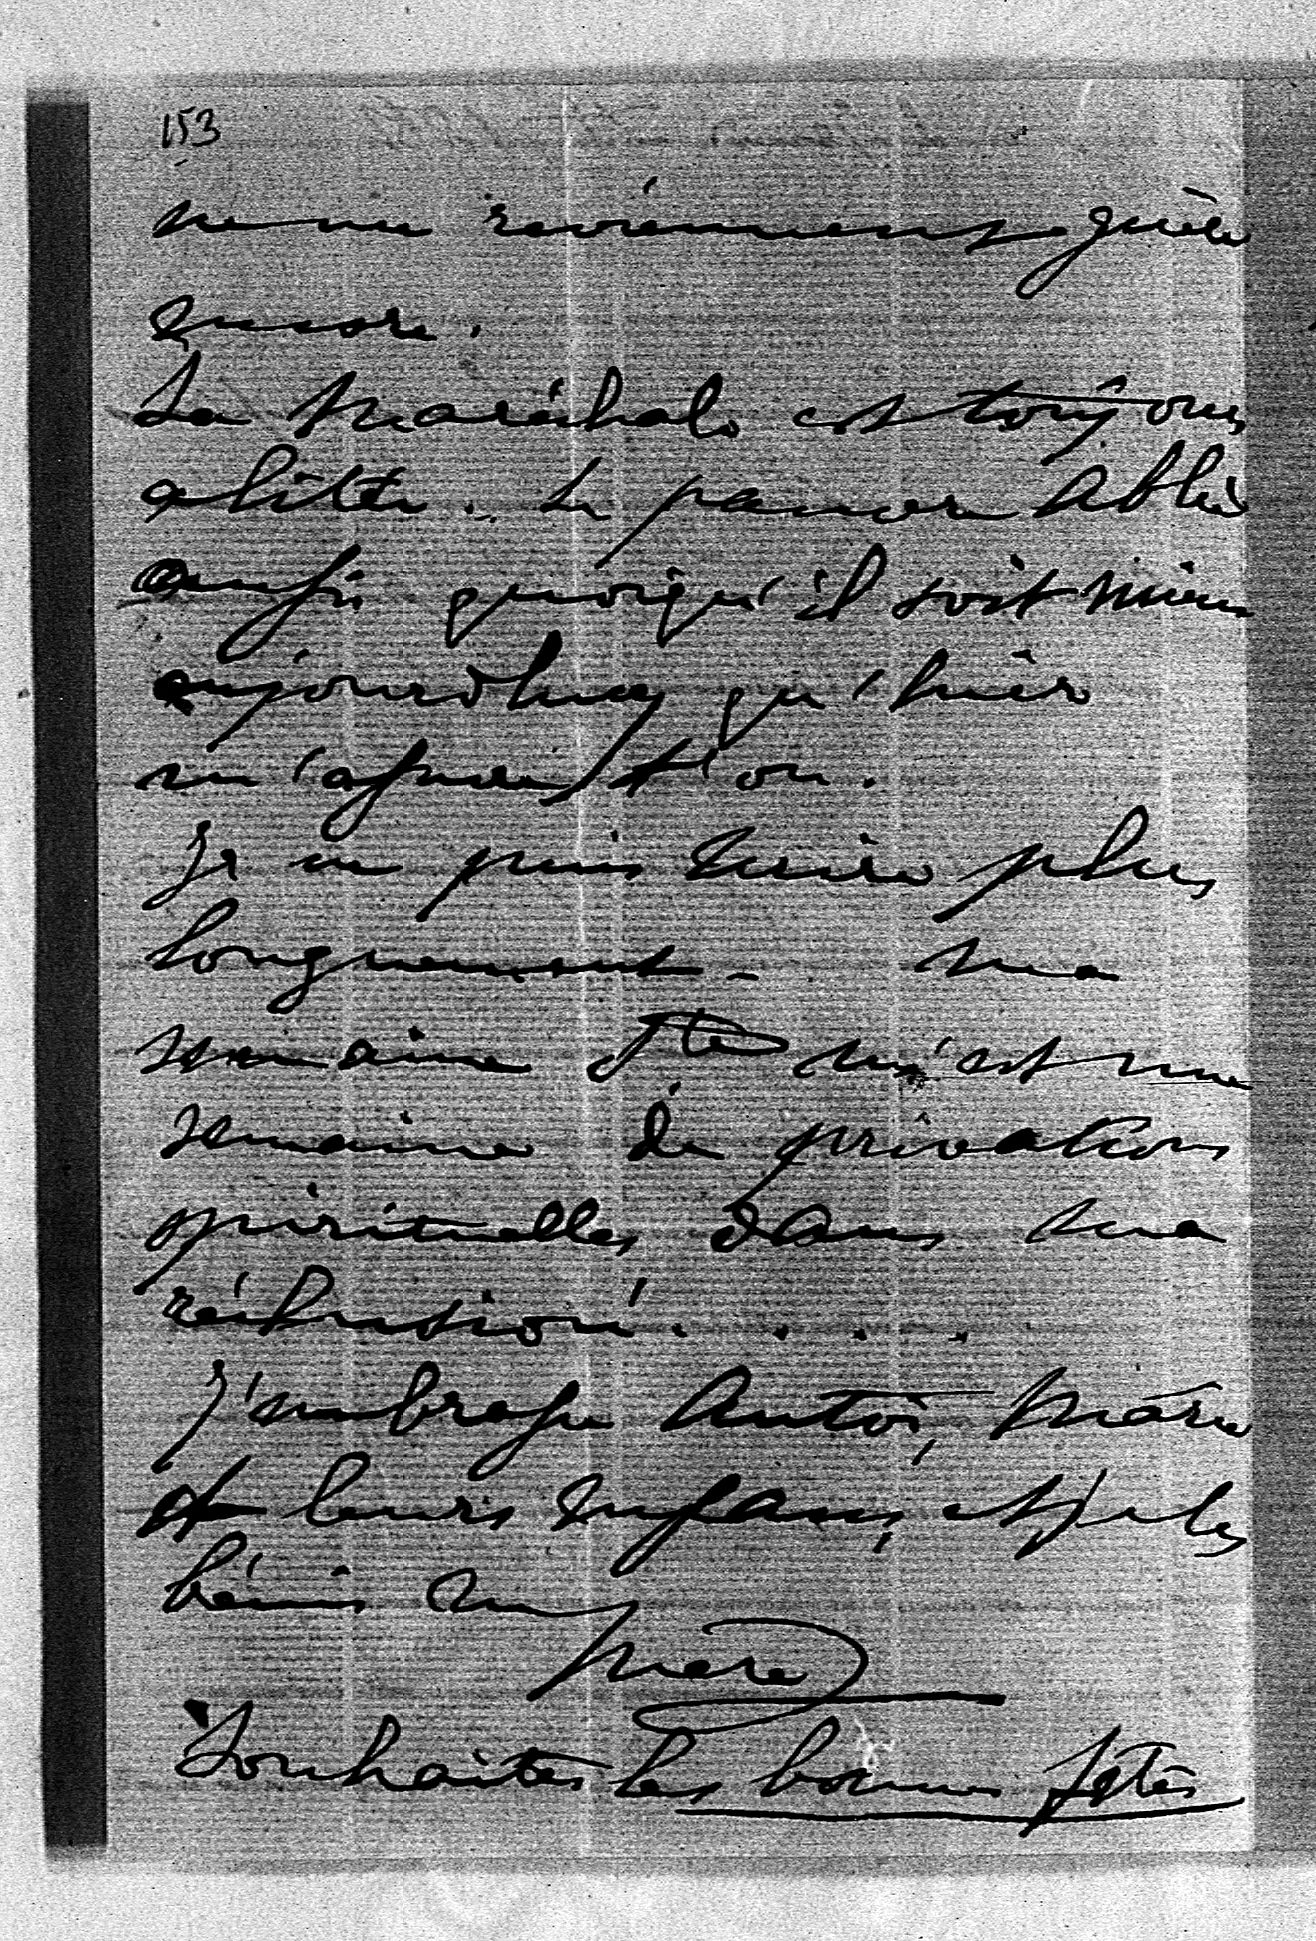 153
ne me reviennent guère
encore.
La Maréchale est toujours
alitée .. Le pauvre Abbé
aussi quoiqu'il soit mieux
aujourd'huy qu'hier
m'assure t'on.
Je ne puis écrire plus
longuement - Ma
semaine Ste m'est une
semaine de privations
spirituelles dans ma
réclusion! . . . .
J'embrasse Anto, Marie
& leurs enfans, et je les
bénis
Mère
Souhaites les bonnes fêtes